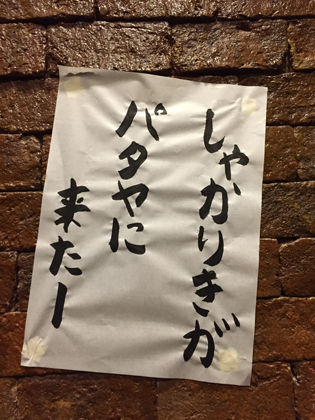 しゃかりきが
パタヤに
来たー